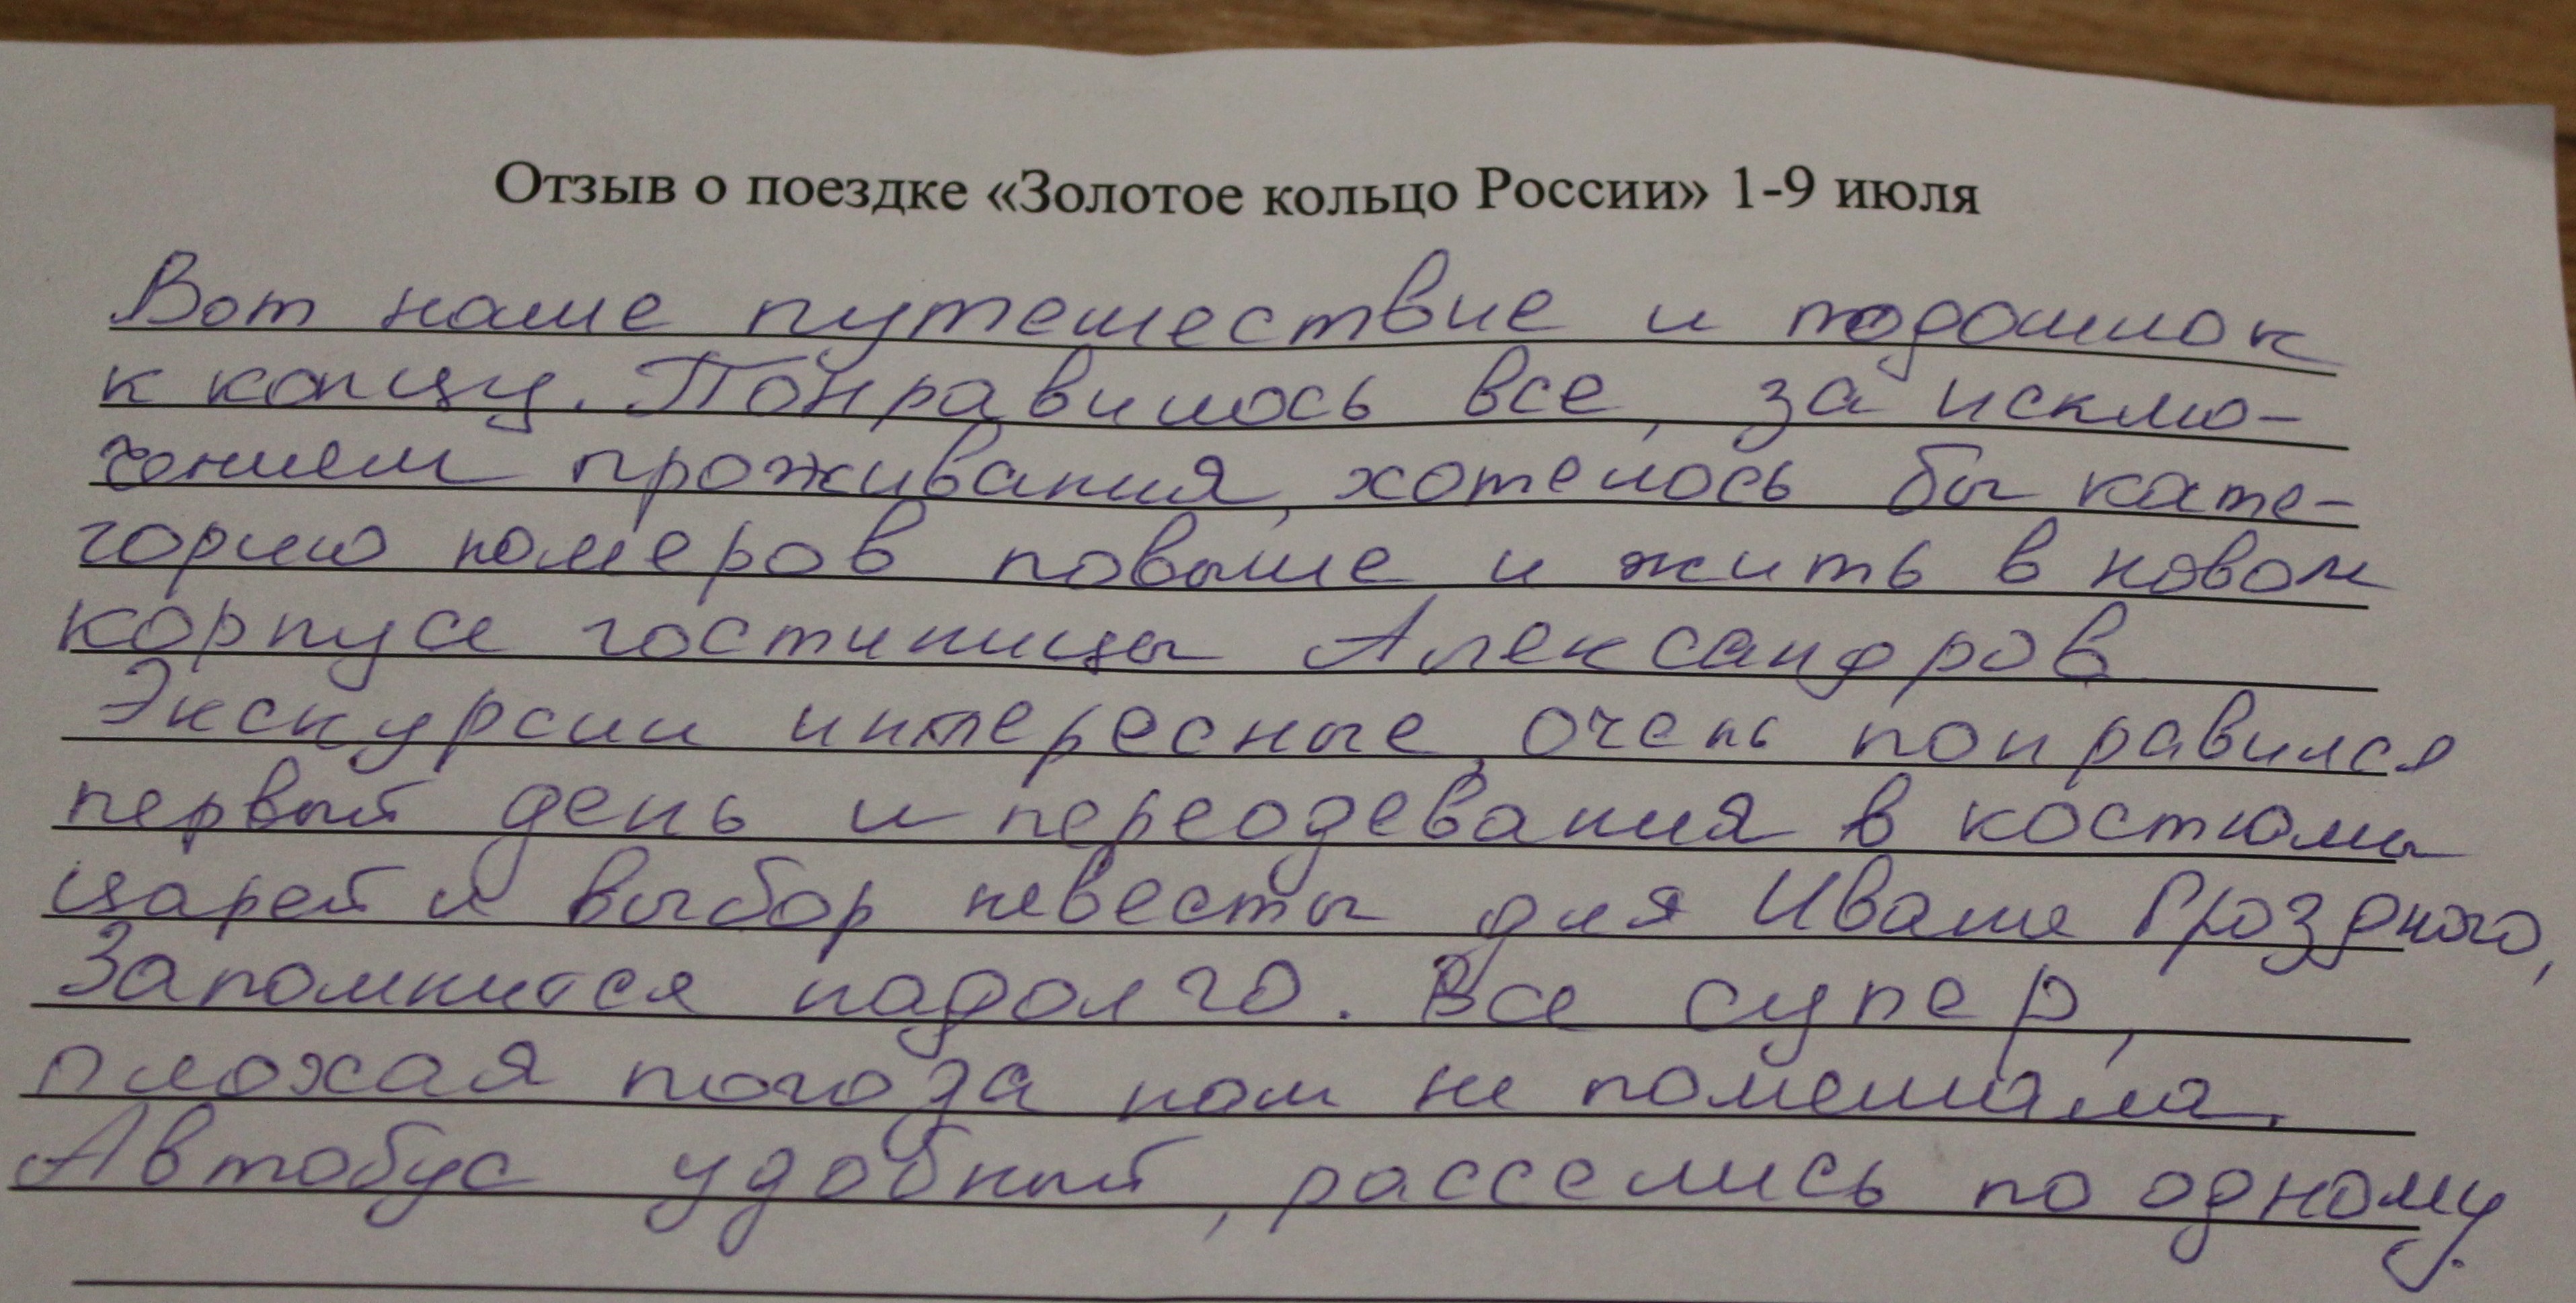 Отзыв о поездке «Золотое кольцо России» 1-9 июля
Вот наше путешествие и подошлок
к концу. Понравилось все, за исклю-
чением проживания, хотелось бы кате-
горию номеров повыше и жить в новом
корпусе гостиницы Александров
Экскурсии интересные, очень понравился
первый день и переодевания в костюмы
царей и выбор невесты для Ивана Гроздного,
Запомнится надолго. Все супер,
плохая погода нам не помешала.
Автобус удобный, расселись по одному.